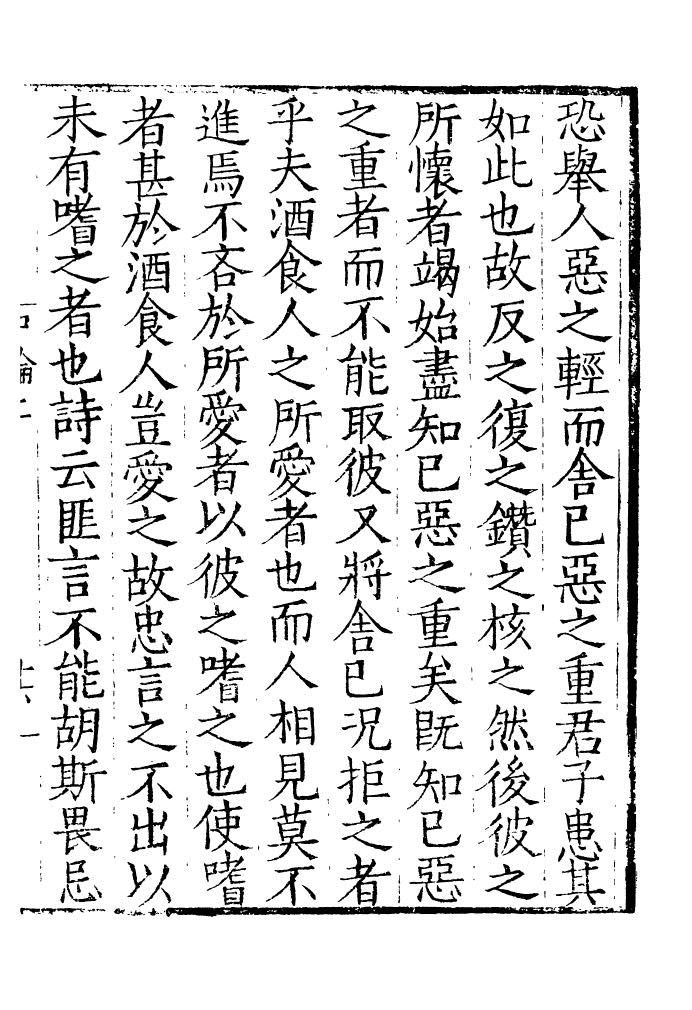 恐舉人惡之輕而舍已惡之重君子患其
如此也故反之復之鑽之核之然後彼之
所懷者竭始盡知已惡之重矣既知已惡
之重者而不能取彼又將舍已况拒之者
乎夫酒食人之所愛者也而人相見莫不
進焉不吝於所愛者以彼之嗜之也使嗜
者甚於酒食人豈愛之故忠言之不出以
未有嗜之者也詩云匪言不能胡斯畏忌